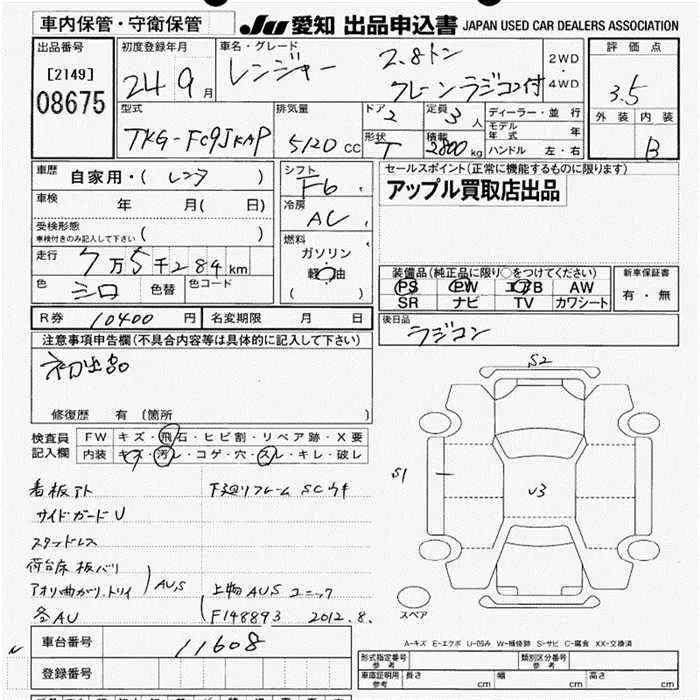 車内保管・守衛保管
JU 愛知 出品申込書 JAPAN USED CAR DEALERS ASSOCIATION
出品番号 [2149] 08675
初度登録年月 24 9月
車名・グレード レンジャー 2.8トン
クレーン ラジコン付
2WD・4WD
評価点 3.5
外装 内装 B
型式 TKG-FC9JKAP
排気量 5120 CC
ドア 2 定員 3人
形状 T 積載 2800kg
ディーラー・並行
モデル年式 年
ハンドル 左・右
車歴 自家用・( レンタ )
車検 年 月( 日)
受検形態
車検付きのみ記入して下さい ( )
走行 7万5千284km
色 シロ 色替 色コード
シフト F6
冷房 AC
燃料 ガソリン
軽油
( )
セールスポイント(正常に機能するものに限ります)
アップル買取店出品
装備品(純正品に限り○をつけてください)
PS PW エアB AW
SR ナビ TV カワシート
新車保証書
有・無
R券 10400円 名変期限 月 日
後日品
ラジコン
注意事項申告欄(不具合内容等は具体的に記入して下さい)
初出品
修復歴 有〔箇所 〕
検査員記入欄
FW キズ・飛石・ヒビ割・リペア跡・X要
内装 キズ・汚レ・コゲ・穴・スレ・キレ・破レ
看板アト
下廻リフレーム SCウキ
サイドガード U
スタッドレス
荷台床 板バリ
アオリ曲がり、トリイ AUS
各AU
上物 AUS ユニック
F148893 2012.8.
S2
S1
U3
スペア
A-キズ E-エクボ U-凹み W-補修跡 S-サビ C-腐食 XX-交換済
車台番号 11608
登録番号
型式指定番号 参考 類別区分番号 参考
車庫証明用 参考 長さ cm 幅 cm 高さ cm